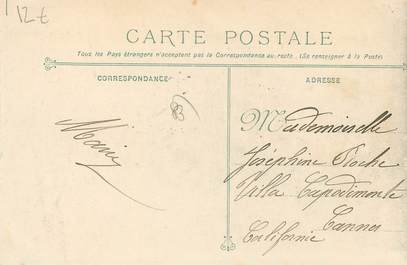 12 €
CARTE POSTALE
Tous les Pays étrangers n'acceptent pas la Correspondance au recto. (Se renseigner à la Poste)
CORRESPONDANCE
ADRESSE
Mademoiselle
Joséphine
Villa Capodimonte
Cannes
Californie